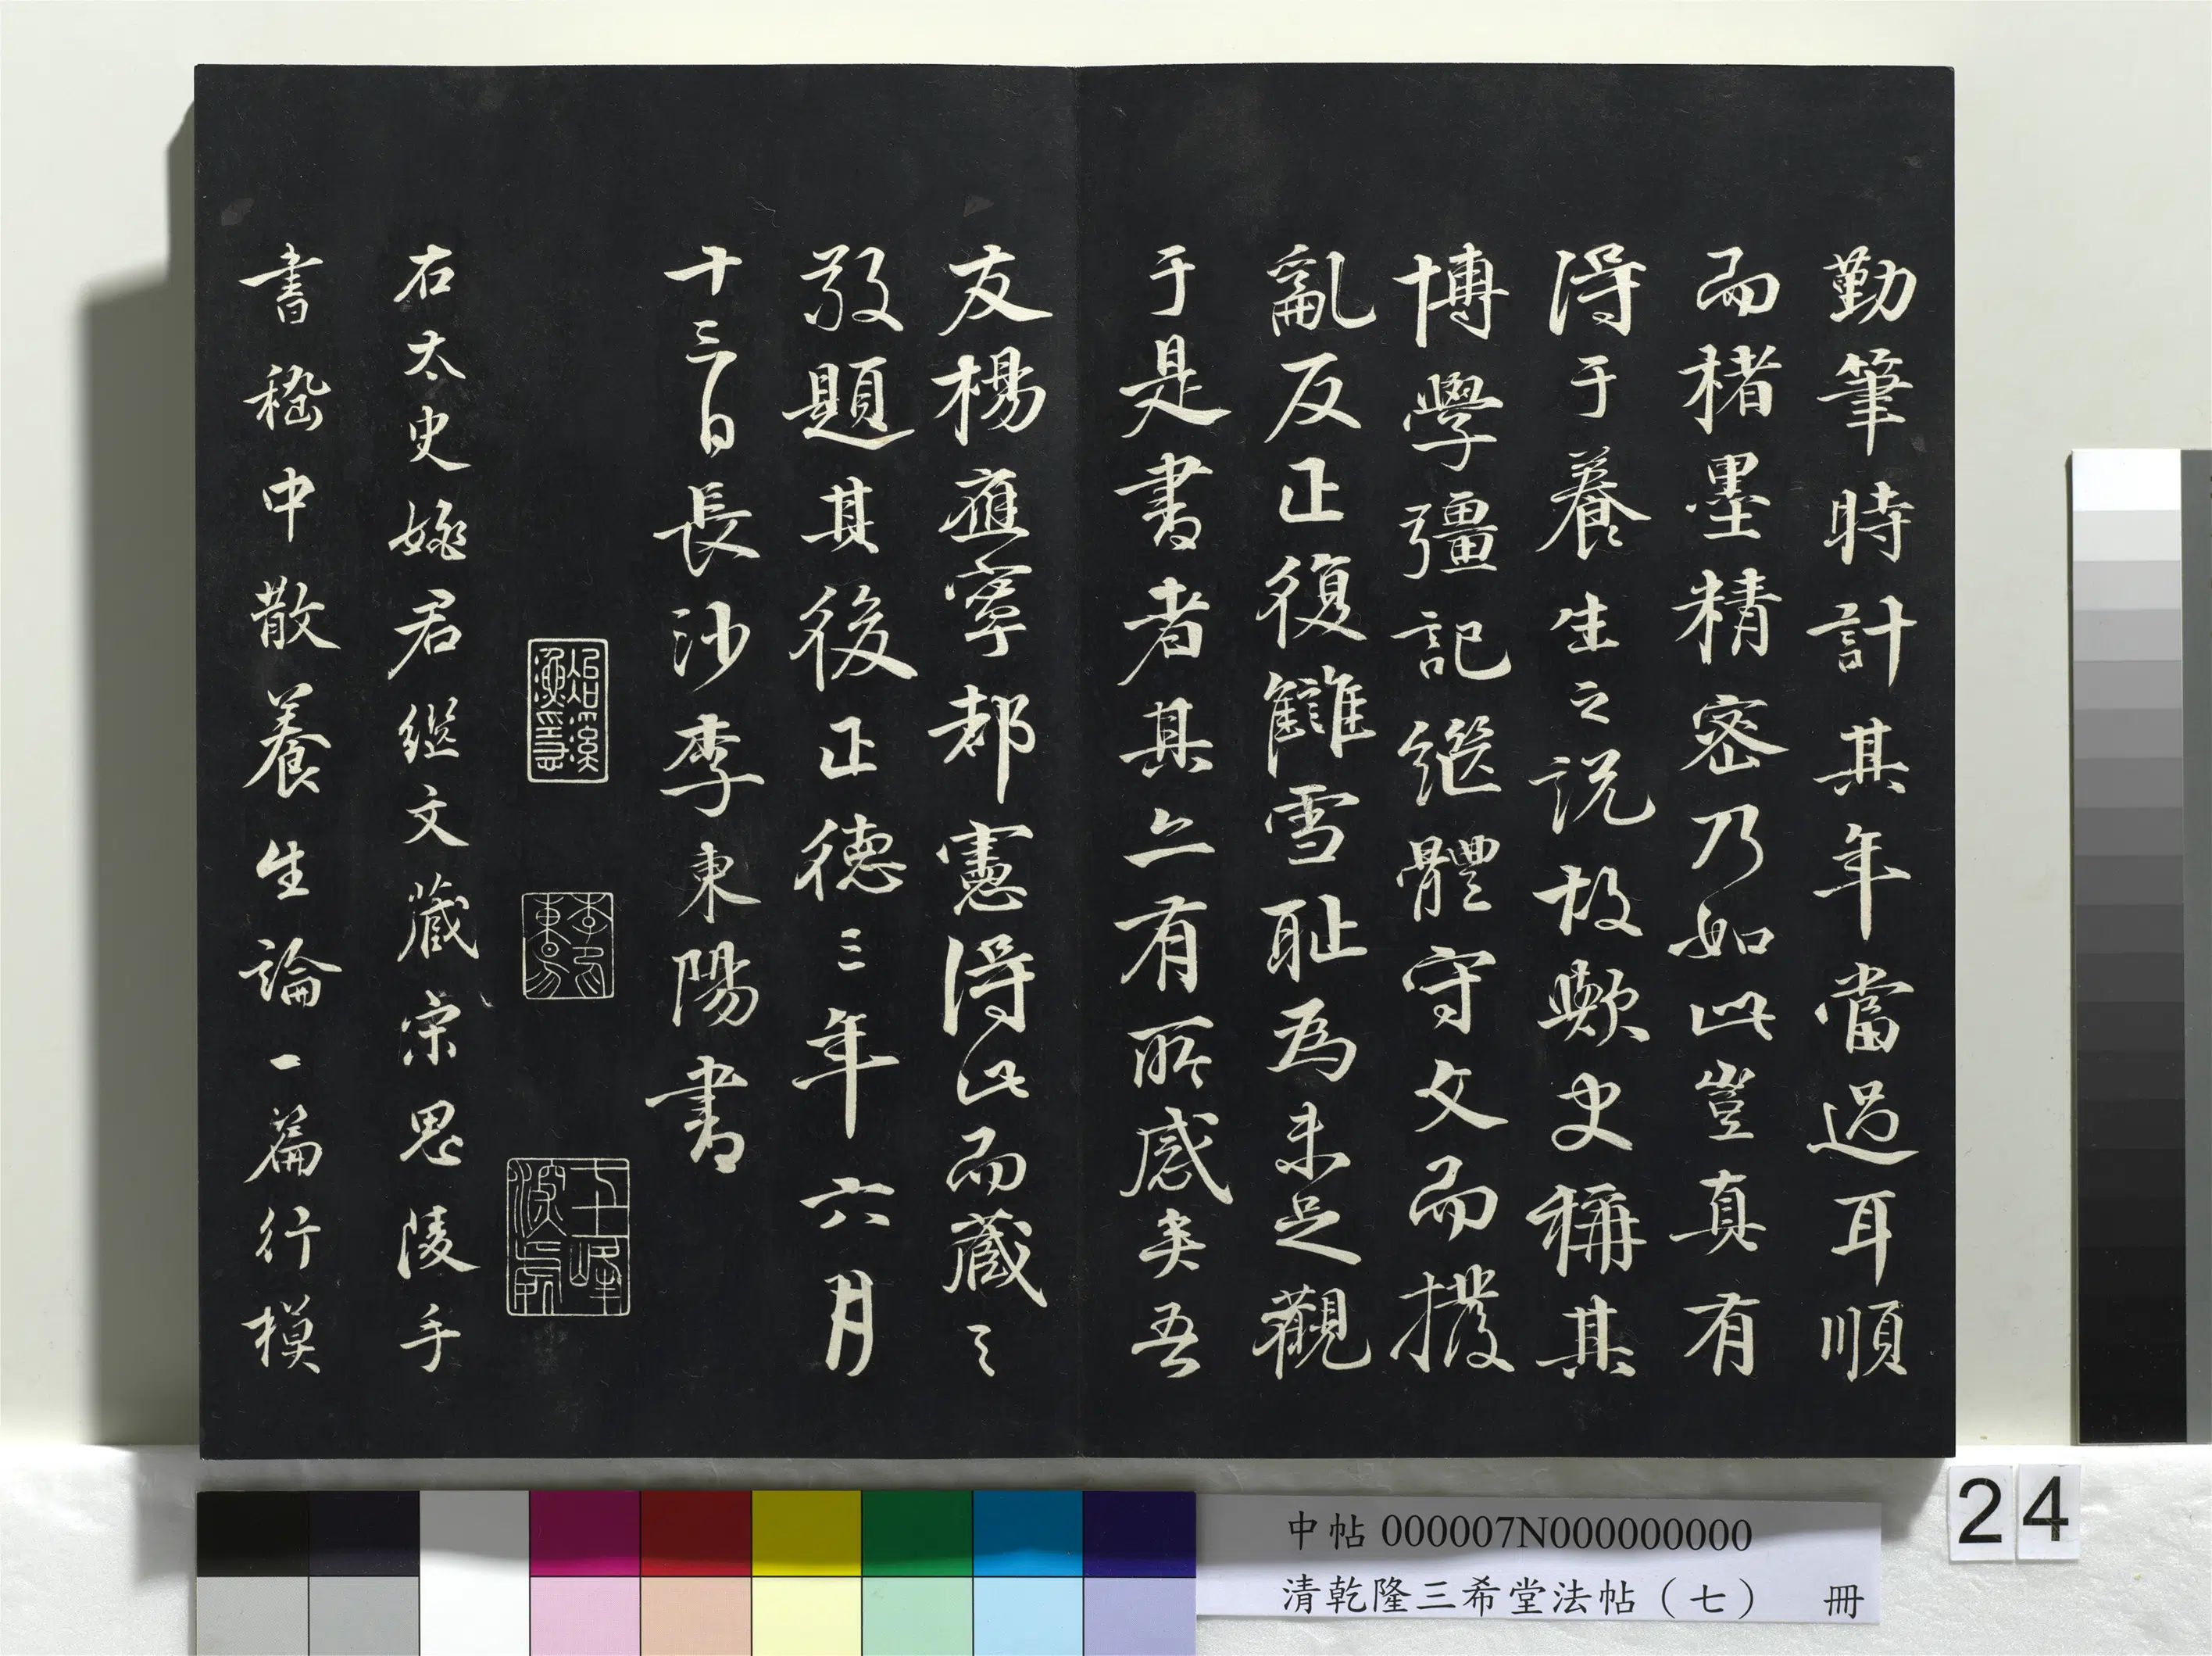 勤筆時計其年當過耳順
而楮墨精密乃如此豈真有
得于養生之説故歟史稱其
博學彊記繼體守文而撥
亂反正復讎雪耻為未足觀
于是書者其亦有所感矣吾
友楊應寧都憲得此而藏之
敬題其後正德三年六月
十三日長沙李東陽書
右太史姚君繼文藏宋思陵手
書嵇中散養生論一篇行模
24
中帖 000007N000000000
清乾隆三希堂法帖（七） 冊